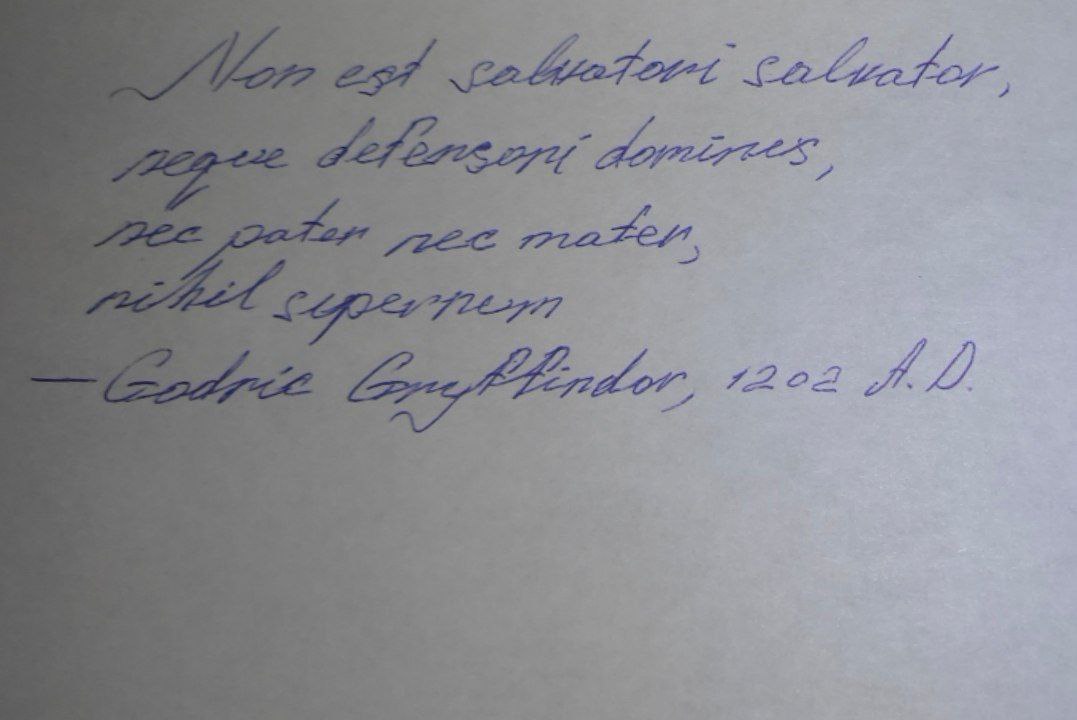 Non est salvatori salvator,
neque defensori dominus,
nec pater nec mater,
nihil supernum
— Godric Gryffindor, 1202 A.D.